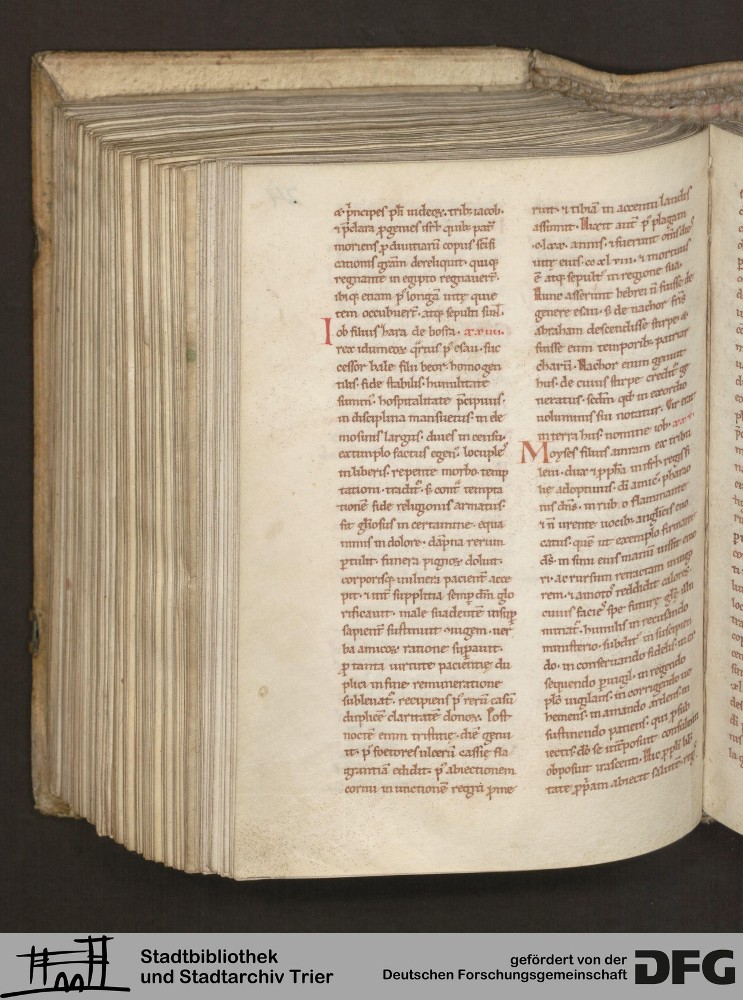 & p̄ncipes płi iudeoꝝ. trib; iacob.
& p̄clara ꝓgenies isrł. quib; pat̄
moriens ꝓ diuitiarū copiis sc̄ifi
cationis gr̄am dereliquit. quiq;
regnante in egipto regnauer̄.
ibiq; etiam p̾ longā uitę quie
tem occubuer̄. atq; sepulti sunt.
Iob filius hara de bosra. xxiiii.
rex idumeoꝝ. q̄rtus p̾ esau. suc
cessor bale filii beor. homo gen
tilis. fide stabilis. humilitate
summ̾. hospitalitate p̄cipuus.
in disciplina mansuetus. in ele
mosinis largus. diues in censu.
extimplo factus egen̾. locuples
in liberis. repente morbo temp
tationi tradit̾. s; cont̄ tempta
tionē fide religionis armatus.
fit gl̄iosus in certamine. equa
nimis in dolore. dāpna rerum
ꝑtulit. funera pignoꝝ doluit.
corporisq; uulnera pacient̄ acce
pit. & int̄ supplitia semp̱ dn̄m glo
rificauit. male suadentē insup̱
sapient̄ sustinuit ɔiugem. uer
ba amicoꝝ ratione sup̱auit.
ꝓ tanta uirtute pacientię du
plici in fine remuneratione
subleuat̾. recipiens p̾ rerū casū
duplicē claritatē donoꝝ. Post
noctē enim tristitię. diē genu
it. p̾ foetores ulcerū cassię fla
grantiā edidit. p̾ abiectionem
cornu in unctionē regnū ꝓme
ruit. & tibiā in accentū laudis
assumit. Vixit aut̄ p̾ plagam
.clxx. annis. & fuerunt om̄s dies
uitę eius .ccxlviii. & mortuus
ē atq; sepult̾ in regione sua.
Nunc asserunt hebrei n̄ fuisse de
genere esau. s; de nachor fr̄is
abraham descendisse stirpe. &
fuisse eum temporib; patriar
charū. Nachor enim genuit
hus. de cuius stirpe credit̾ ge
neratus. sedm̄ qđ in exordio
uoluminis sui notatur. Vir erat
in terra hus nomine iob. xxv.
Moyses filius amram ex tribu
leui. dux & ꝓph̄a in isrł. regis fi
lię adoptiuus. dī amic̾. pharao
nis dn̄s. in rubo flammante
& n̄ urente uocib; anglicis euo
catus. quē ut exemplo firmaret
dš. in sinu eius manū iussit mitte
ri. ac rursum retractam in nigo
rem. & amoto reddidit calorē.
cuius facies spe futurę glę. illu
minat̾. humilis in recusando
ministerio. subdit̾ in suscipien
do. in conseruando fidelis. in ex
sequendo ꝑuigil. in regendo
pło uigilans. in corrigendo ue
hemens. in amando ardens. in
sustinendo patiens. qui ꝓ sub
iectis dō se int̄posuit consulenti
obposuit irascenti. Hic ꝓ płi lib̄
tate ꝓp̄am abiecit salutē. reg
Stadtbibliothek
und Stadtarchiv Trier
gefördert von der
Deutschen Forschungsgemeinschaft
DFG